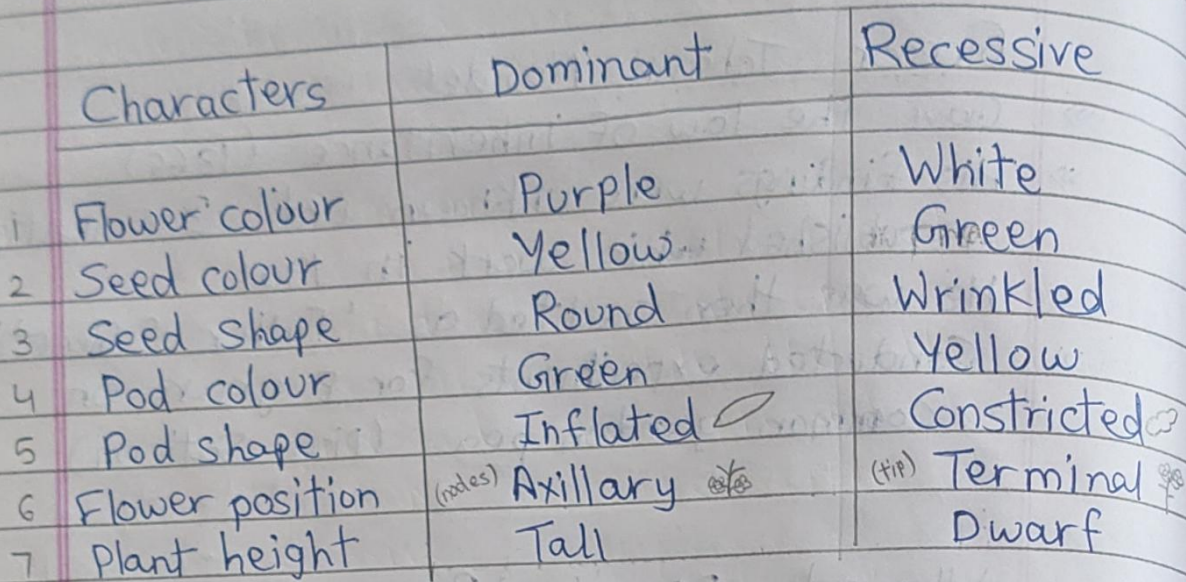 Characters Dominant Recessive
1 Flower colour Purple White
2 Seed colour Yellow Green
3 Seed shape Round Wrinkled
4 Pod colour Green Yellow
5 Pod shape Inflated Constricted
6 Flower position (nodes) Axillary (tip) Terminal
7 Plant height Tall Dwarf